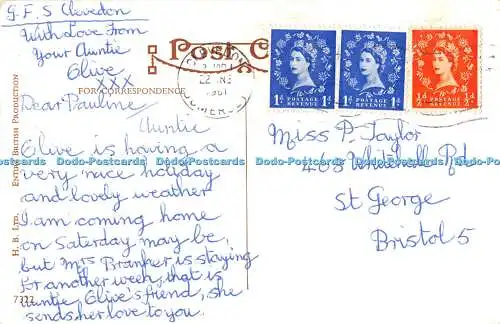 G.F.S Clevedon
With Love From
Your Auntie
Olive
XXX
Post C
FOR CORRESPONDENCE
Dear Pauline
Auntie
Olive is having a
very nice holiday
and lovely weather
I am coming home
on Saturday may be,
but Mrs Branker is staying
for another week, that is
auntie, Olive's friend, she
sends her love to you.
H. B. LTD.
ENTIRE BRITISH PRODUCTION
7322
1961
1D POSTAGE REVENUE 1D
1D POSTAGE REVENUE 1D
½D POSTAGE REVENUE ½D
Miss P Taylor
468 Whitehall Rd
St George
Bristol 5
Dodo-Postcards Dodo-Postcards Dodo-Postcards Dodo-Postcards Dodo-Postcards